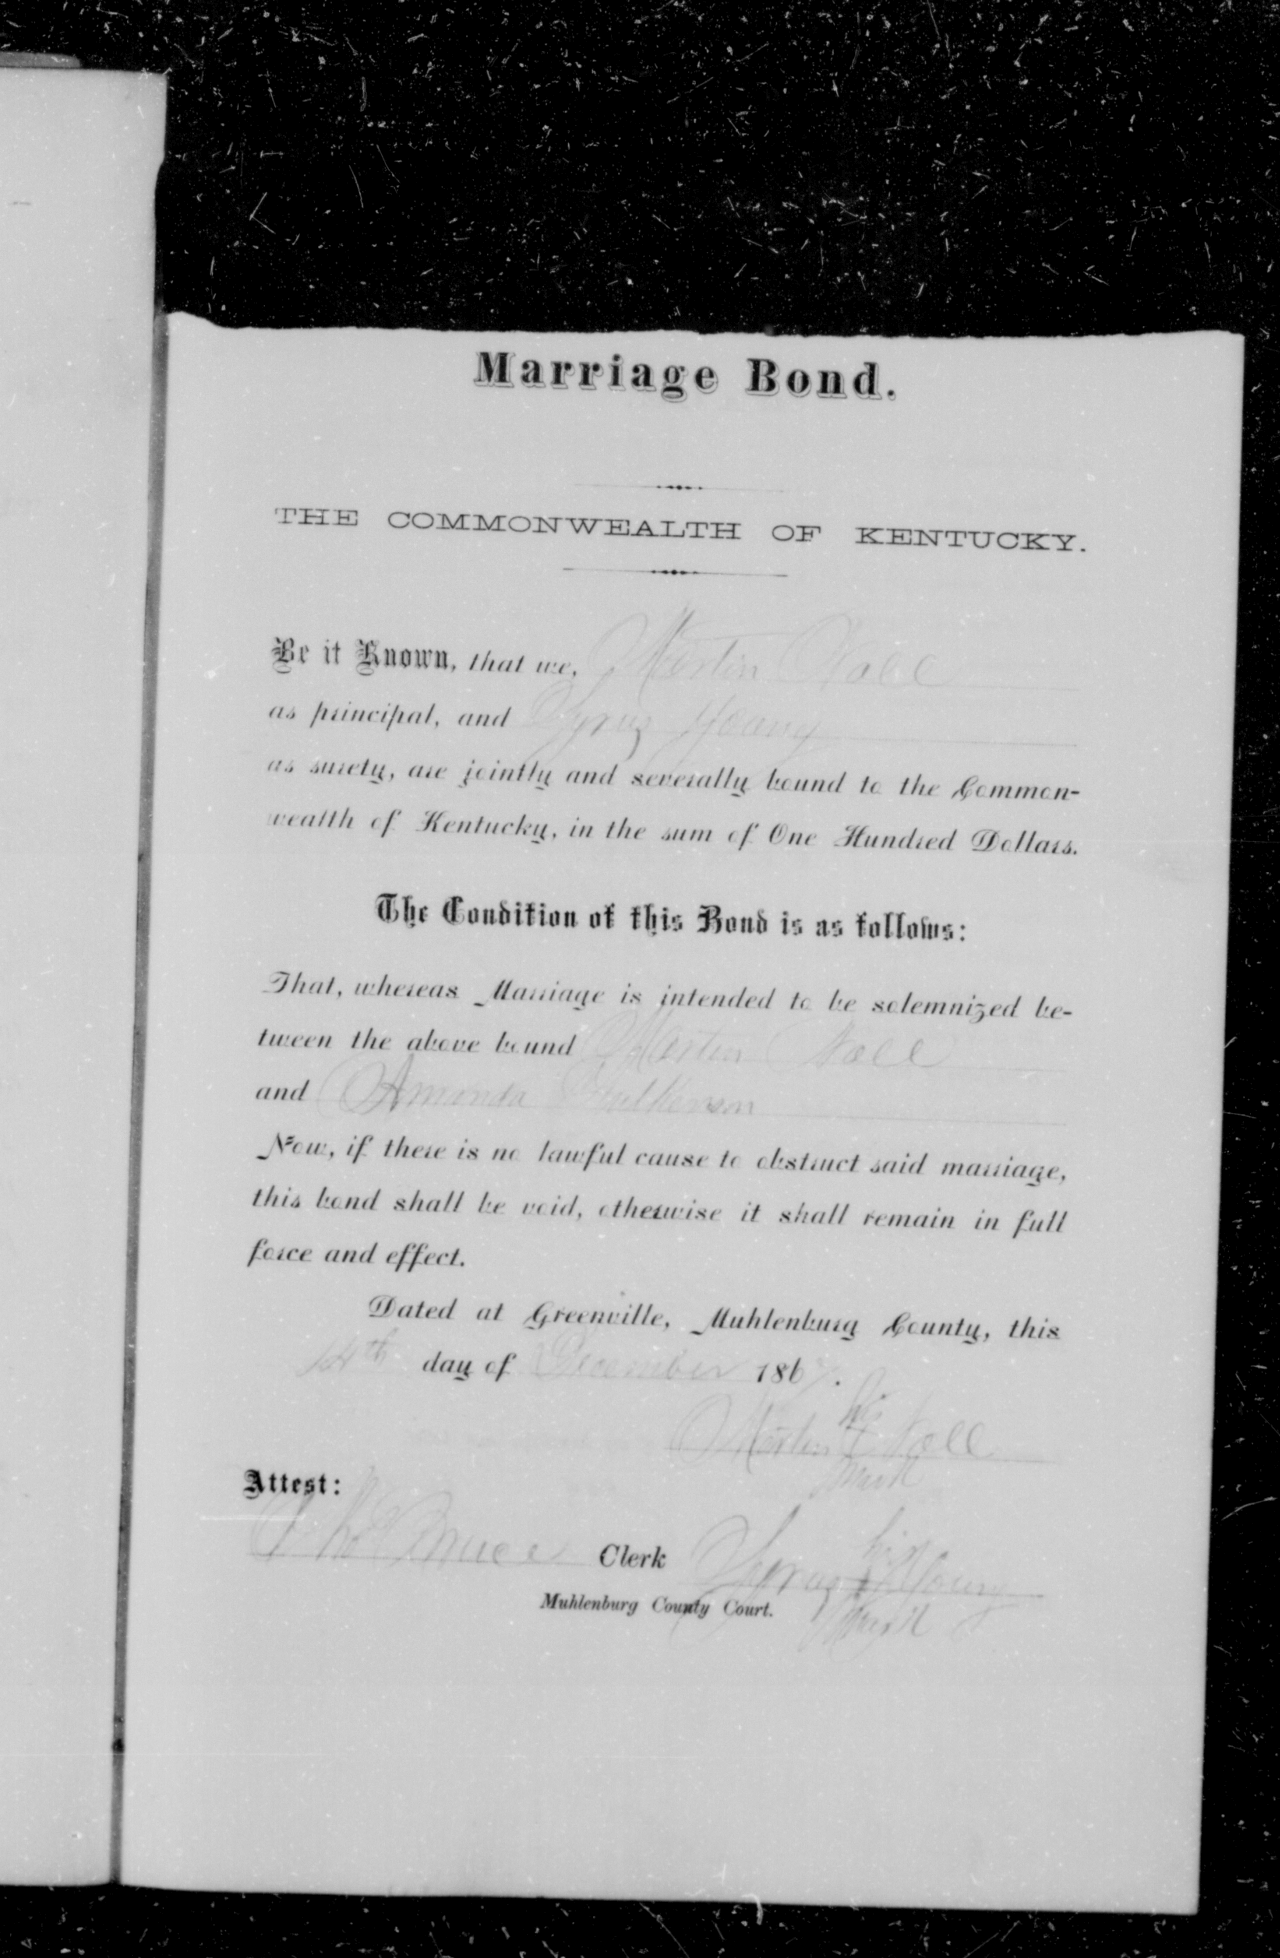 Marriage Bond.
THE COMMONWEALTH OF KENTUCKY.
Be it Known, that we, Martin
as principal, and Syrus Young
as surety, are jointly and severally bound to the Common-
wealth of Kentucky, in the sum of One Hundred Dollars.
The Condition of this Bond is as follows:
That, whereas Marriage is intended to be solemnized be-
tween the above bound Martin
and Amanda
Now, if there is no lawful cause to obstruct said marriage,
this bond shall be void, otherwise it shall remain in full
force and effect.
Dated at Greenville, Muhlenburg County, this
day of December 186
his
Martin
mark
Attest:
Bruce Clerk
his
Syrus Young
Muhlenburg County Court.
mark